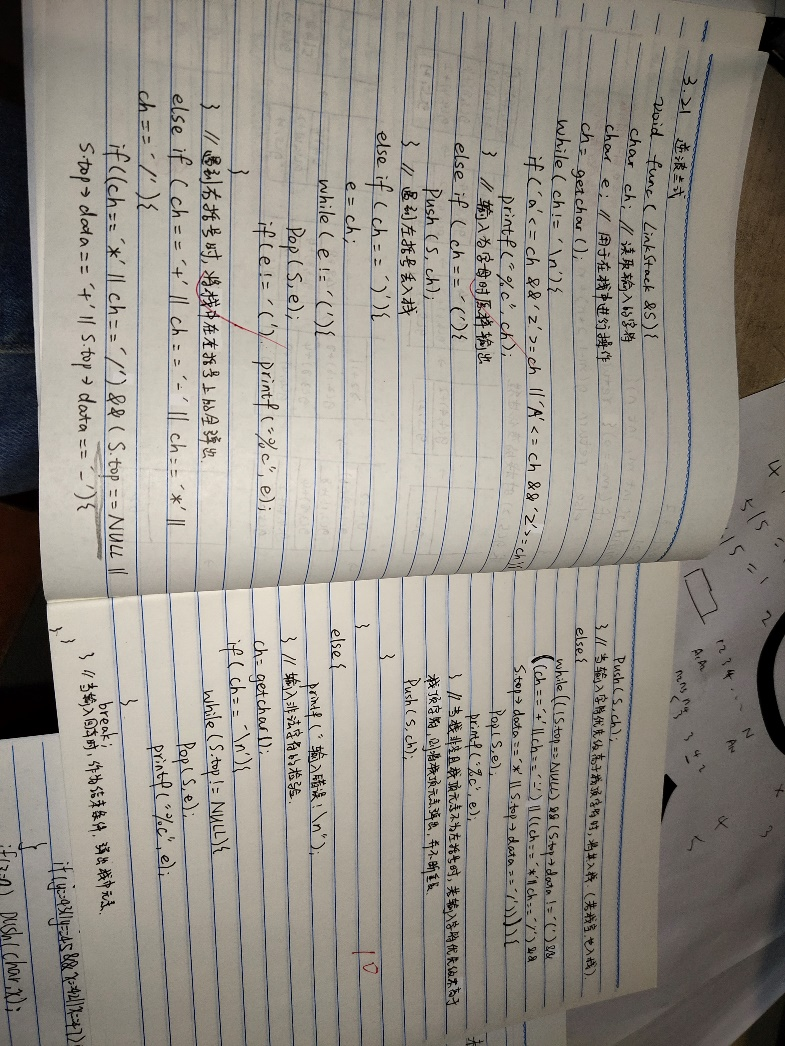 3.21 逆波兰式
void func(LinkStack &S){
char ch; // 读取输入的字符
char e; // 用于在栈中进行操作
ch=getchar();
while(ch!='\n'){
if('a'<=ch && 'z'>=ch || 'A'<=ch && 'Z'>=ch){
printf("%c",ch);
} // 输入为字母时直接输出
else if (ch=='('){
Push(S,ch);
} // 遇到左括号丢入栈
else if (ch==')'){
e=ch;
while(e!='('){
Pop(S,e);
if(e!='(') printf("%c",e);
}
} // 遇到右括号时,将栈中在左括号上的全弹出.
else if (ch=='+' || ch=='-' || ch=='*' ||
ch=='/'){
if((ch=='*' || ch=='/') && (S.top==NULL ||
S.top→data=='+' || S.top→data=='-'){
Push(S,ch);
} // 当输入字符优先级高于栈顶字符时,将其入栈 (若栈空,也入栈).
else{
while(((S.top==NULL) && (S.top→data!='(') &&
((ch=='+' || ch=='-') || ((ch=='*' || ch=='/') &&
S.top→data=='*' || S.top→data=='/')))){
Pop(S,e);
printf("%c",e);
} // 当栈非空且栈顶元素不为左括号时,若输入字符优先级不高于
栈顶字符,则将栈顶元素弹出,并不断重复
Push(S,ch);
}
}
else{
printf("输入错误!\n");
} // 输入非法字符的检验.
ch=getchar();
if(ch=='\n'){
while(S.top!=NULL){
Pop(S,e);
printf("%c",e);
}
break;
} // 当输入回车时,作为结束条件,弹出栈中元素.
}
}
10
push(char,x);
1234 ... N
3 4 2